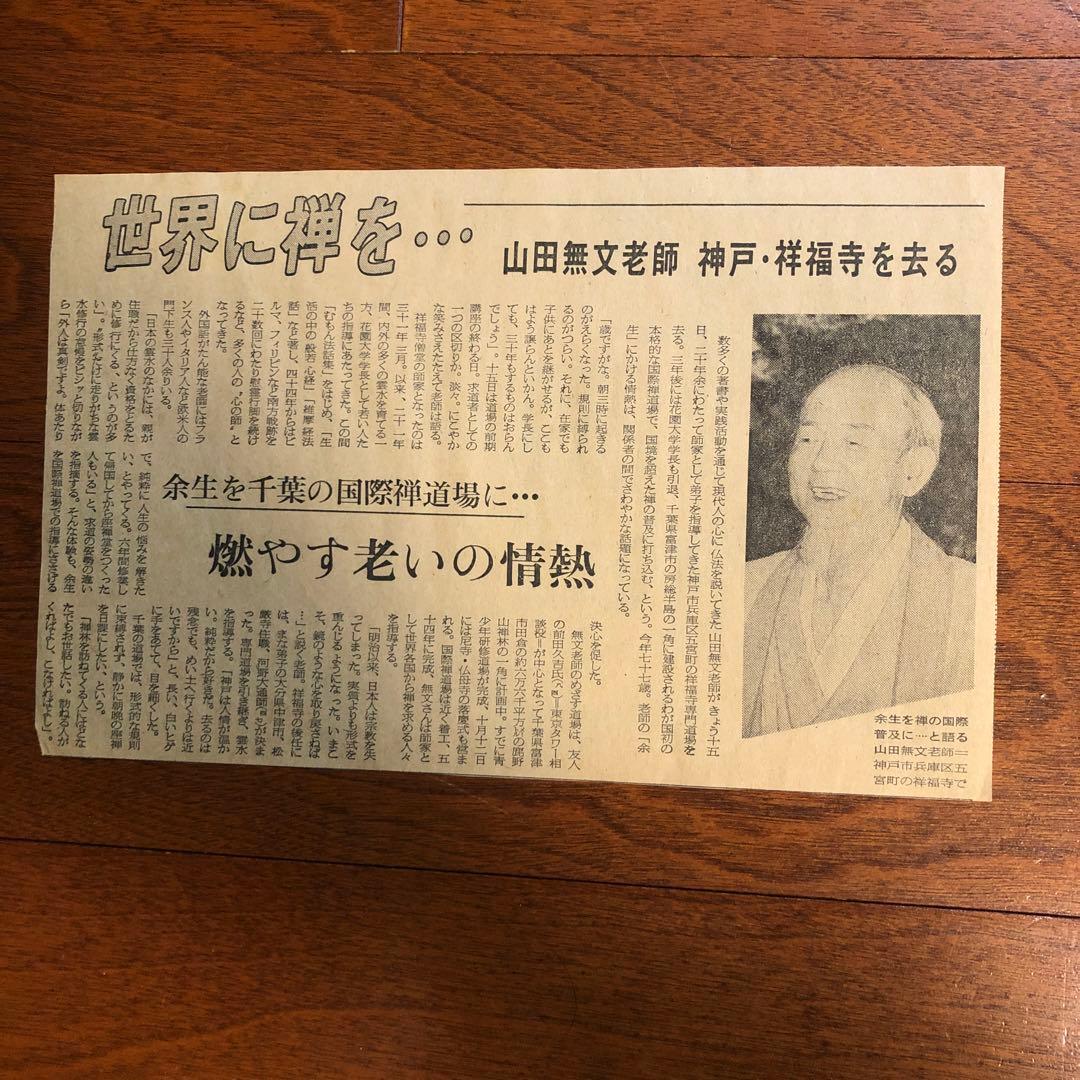 世界に禅を…
山田無文老師 神戸・祥福寺を去る
余生を千葉の国際禅道場に…
燃やす老いの情熱
数多くの著書や実践活動を通じて現代人の心に仏法を説いてきた山田無文老師がきょう十五
日、二十年余にわたって師家として弟子を指導してきた神戸市兵庫区五宮町の祥福寺専門道場を
去る。三年後には花園大学学長も引退、千葉県富津市の房総半島の一角に建設されるわが国初の
本格的な国際禅道場で、国境を超えた禅の普及に打ち込む、という。今年七十七歳。老師の「余
生」にかける情熱は、関係者の間でさわやかな話題になっている。
「歳ですがな。朝三時に起きる
のがえらくなった。規則に縛られ
るのがつらい。それに、在家でも
子供にあとを継がせるが、ここも
はよう譲らんといかん。学長にし
ても、三十年もするものはおらん
でしょう」。十五日は道場の前期
講座の終わる日。求道者としての
一つの区切りか。淡々。にこやか
な笑みさえたたえて老師は語る。
祥福寺僧堂の師家となったのは
三十一年三月。以来、二十一年
間、内外の多くの雲水を育てる一
方、花園大学学長として若い人た
ちの指導にあたってきた。この間
「むもん法話集」をはじめ、「生
活の中の般若心経」「維摩経法
話」など著し、四十四年からはビ
ルマ、フィリピンなど南方戦跡を
二十数回にわたり慰霊行脚を続け
るなど、多くの人の〝心の師〟と
なってきた。
外国語がたん能な老師にはフラ
ンス人やイタリア人など欧米人の
門下生も三十人余りいる。
「日本の雲水のなかには、親が
住職だから仕方なく資格をとるた
めに修行にくる、というのが多
い」。〝形式〟だけに走りがちな雲
水修行の怠慢をピシャと切りなが
ら「外人は真剣ですよ。体あたり
で、純粋に人生の悩みを解きた
い、とやってくる。六年間修業し
て帰国してから座禅堂をつくった
人もいる」と、求道の姿勢の違い
を指摘する。そんな体験も、余生
を国際禅道場での指導にささげる
決心を促した。
無文老師のめざす道場は、友人
の前田久吉氏(八四)=東京タワー相
談役=が中心となって千葉県富津
市田倉の約六万六千平方㍍の鹿野
山禅林の一角に計画中。すでに青
少年研修道場が完成、十月十二日
には尼寺・仏母寺の落慶式も営ま
れる。国際禅道場は近く着工、五
十四年に完成、無文さんは師家と
して世界各国から禅を求める人々
を指導する。
「明治以来、日本人は宗教を失
ってしまった。実質よりも形式を
重んじるようになった。いまこ
そ、鏡のような心を取り戻さねば
…」と説く老師。祥福寺の後任に
は、まな弟子の大分県中津市、松
厳寺住職、河野大通師(四七)が決ま
った。専門道場を引き継ぎ、雲水
を指導する。「神戸は人情が温か
い。純粋だから好きだ。去るのは
残念でも、めい土へ行くよりは近
いですから」と、長い、白いヒゲ
に手をあてて、目を細くした。
千葉の道場では、形式的な規則
に束縛されず、静かに朝晩の座禅
を日課にしたい、という。
「禅林を訪ねてくる人にはどな
たでもお世話したい。訪ねる人が
くればよし、こなければよし」。
余生を禅の国際
普及に…と語る
山田無文老師=
神戸市兵庫区五
宮町の祥福寺で